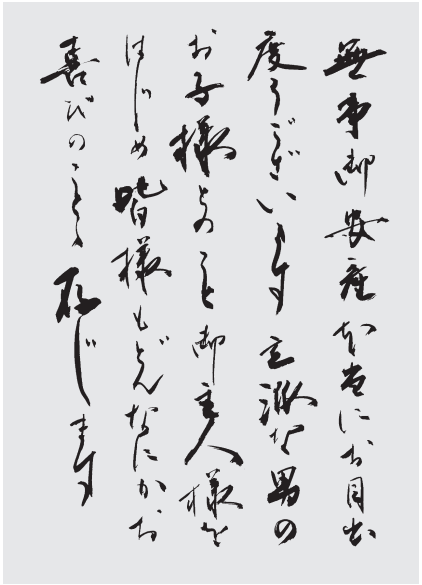 無事御安産本当にお目出
度うございます立派な男の
お子様とのこと御主人様を
はじめ皆様もどんなにかお
喜びのことゝ存じます